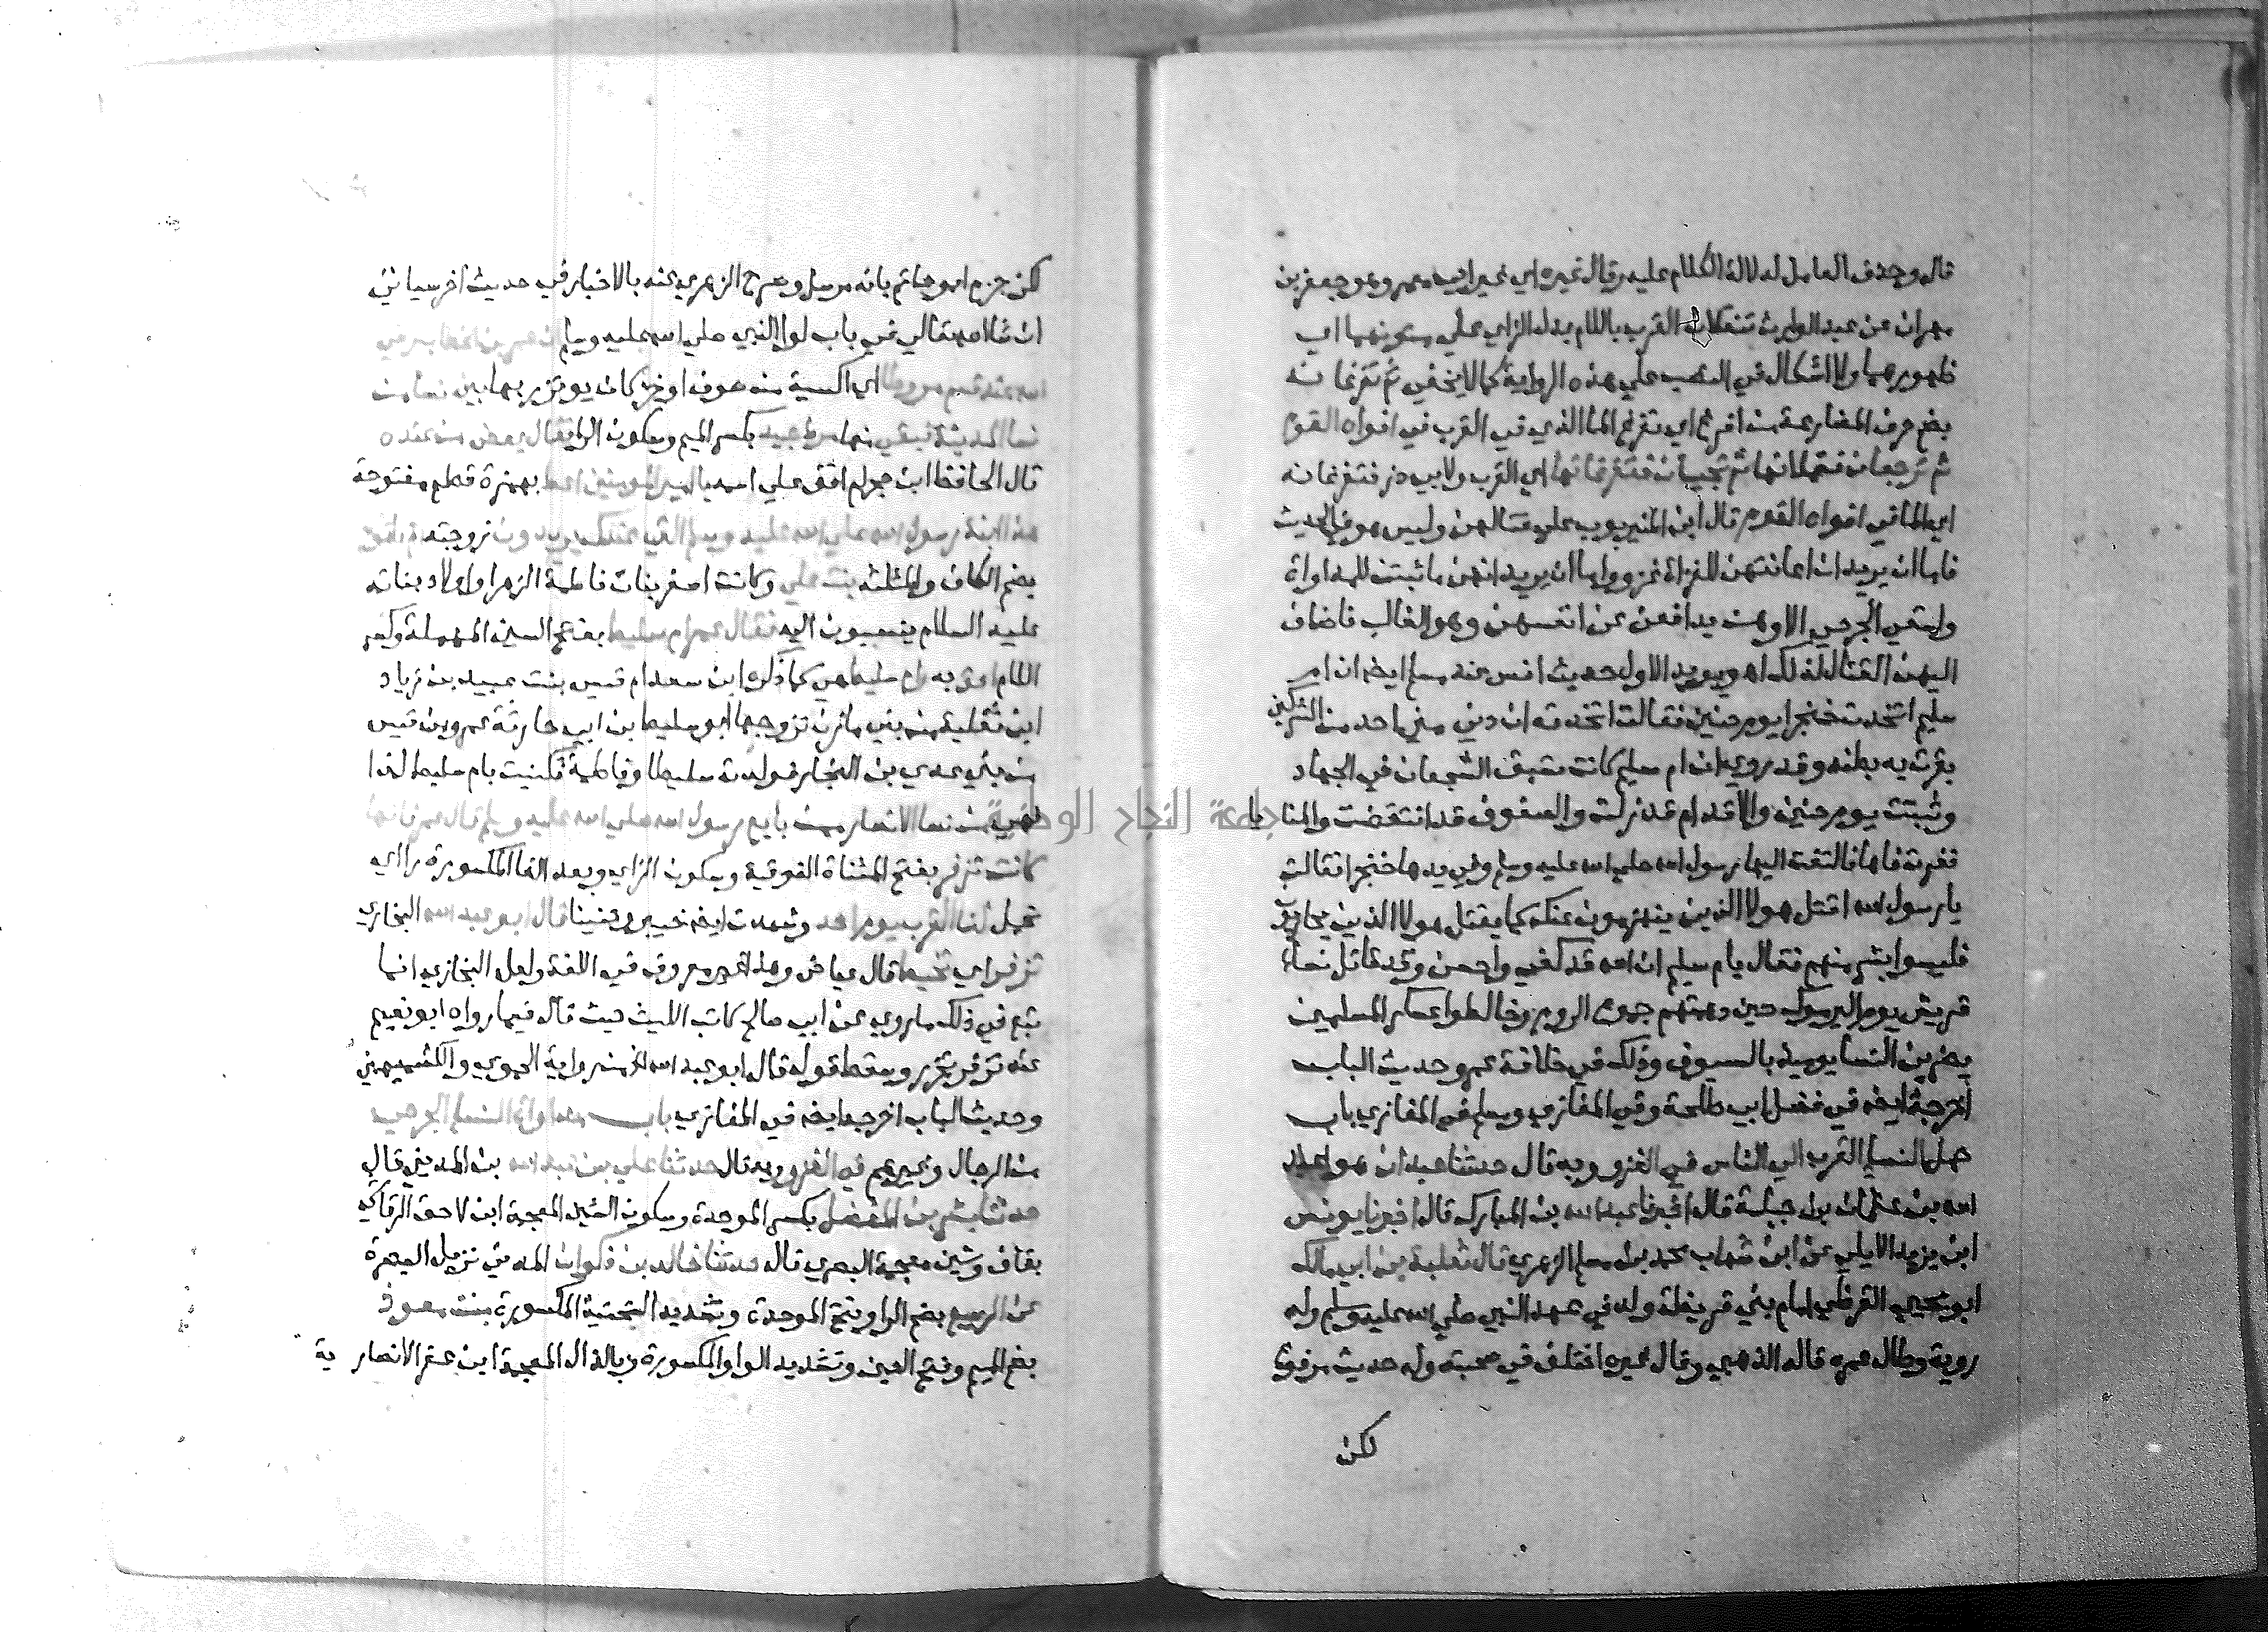 قال وحذف العامل لدلالة الكلام عليه وقال غيره اي غير ابي معمر وهو جعفر بن
مهران عن عبد الوارث تنقلان القرب باللام بدل الزاي علي متونهما اي
ظهورهما ولا اشكال في النصب علي هذه الرواية كما لا يخفي ثم تفرغانه
بضم حرف المضارعة من افرغ اي تفرغ الما الذي في القرب في افواه القوم
ثم ترجعان فتملانها ثم تجيان فتفرغانها اي القرب ولابي ذر فتفرغانه
اي الما في افواه القوم قال ابن المنير بوب علي قتالهن وليس هو في الحديث
فاما ان يريد ان اعانتهن للغزاة غزو واما ان يريد انهن ما ثبتن للمداواة
ولسقي الجرحي الا وهن يدافعن عن انفسهن وهو الغالب فاضاف
اليهن القتال لذلك اه ويويد الاول حديث انس عند مسلم ايضا ان ام
سليم اتخذت خنجرا يوم حنين فقالت اتخذته ان دني مني احد من المشركين
بقرت به بطنه وقد روي ان ام سليم كانت تسبق الشجعان في الجهاد
وثبتت يوم حنين والاقدام قد زلت والصفوف قد انتقضت والمنايا
فغرت فاها فالتفت اليها رسول الله صلي الله عليه وسلم وفي يدها خنجر فقالت
يا رسول الله اقتل هولا الذين ينهزمون عنك كما يقتل هولا الذين يحاربون
فليسوا بشر منهم فقال يام سليم ان الله قد كفي واحسن وقد قاتل نساء
قريش يوم اليرموك حين دهمتهم جموع الروم وخالطوا عسكر المسلمين
يضربن النسا يوميذ بالسيوف وذلك في خلافة عمر وحديث الباب
اخرجه ايضا في فضل ابي طلحة وفي المغازي ومسلم في المغازي باب
حمل النسا القرب الي الناس في الغزو وبه قال حدثنا عبدان هو عبد
الله بن عثمان بن جبلة قال اخبرنا عبد الله بن المبارك قال اخبرنا يونس
ابن يزيد الايلي عن ابن شهاب محمد بن مسلم الزهري قال ثعلبة بن ابي مالك
ابو يحيي القرظي امام بني قريظة ولد في عهد النبي صلي الله عليه وسلم وله
روية وطال عمره قاله الذهبي وقال غيره اختلف في صحبته وله حديث مرفوع
لكن
لكن جزم ابو حاتم بانه مرسل وصرح الزهري عنه بالاخبار في حديث اخر سياتي
ان شا الله تعالي في باب لوا النبي صلي الله عليه وسلم ان عمر بن الخطاب رضي
الله عنه قسم مروطا اي اكسية من صوف او خز كان يوتزر بها بين نسا من
نسا المدينة فبقي منها مرط جيد بكسر الميم وسكون الرا فقال بعض من عنده
قال الحافظ ابن حجر لم اقف علي اسمه يا امير المومنين اعط بهمزة قطع مفتوحة
هذا ابنة رسول الله صلي الله عليه وسلم التي عندك يريدون زوجته ام كلثوم
بضم الكاف والمثلثه بنت علي وكانت اصغر بنات فاطمة الزهرا واولاد بناته
عليه السلام ينسبون اليه فقال عمر ام سليط بفتح السين المهملة وكسر
اللام احق به وام سليط هي كما ذكره ابن سعد ام قيس بنت عبيد بن زياد
ابن ثعلبة من بني مازن تزوجها ابو سليط بن ابي حارثة عمرو بن قيس
من بني عدي بن النجار فولدت سليطا وفاطمة فكنيت بام سليط لذا
فهي من نسا الانصار ممن بايع رسول الله صلي الله عليه وسلم قال عمر فانها
كانت تزفر بفتح المثناة الفوقية وسكون الزاي وبعد الفا المكسورة را اي
تحمل لنا القرب يوم احد وشهدت ايضا خيبر وحنينا قال ابو عبد الله البخاري
تزفر اي تخيط قال عياض وهذا غير معروف في اللغة ولعل البخاري انما
تبع في ذلك ما روي عن ابي صالح كاتب الليث حيث قال فيما رواه ابو نعيم
عنه تزفر تخرز وسقط قوله قال ابو عبد الله الخ من رواية الحموي والكشميهني
وحديث الباب اخرجه ايضا في المغازي باب مداواة النسا الجرحي
من الرجال وغيرهم في الغزو وبه قال حدثنا علي بن عبد الله بن المديني قال
حدثنا بشر بن المفضل بكسر الموحدة وسكون الشين المعجمة ابن لاحق الرقاشي
بقاف وشين معجمة البصري قال حدثنا خالد بن ذكوان المدني نزيل البصرة
عن الربيع بضم الرا وفتح الموحدة وتشديد التحتية المكسورة بنت معوذ
بضم الميم وفتح العين وتشديد الواو المكسورة وبالذال المعجمة ابن عفر الانصارية
جامعة النجاح الوطنية